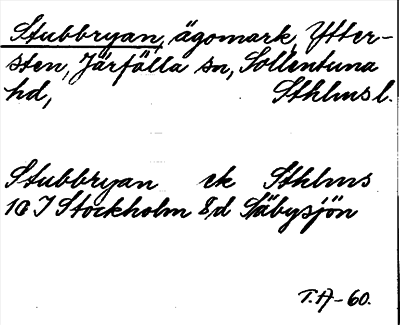 Stubbryan, ägomark, Ytter-
sten, Järfälla sn, Sollentuna
hd, Sthlms l.
Stubbryan ek Sthlms
10 I Stockholm 8/d Säbysjön
T. A-60.